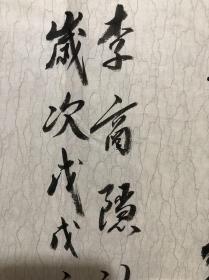 李商隱
歲次戊戌